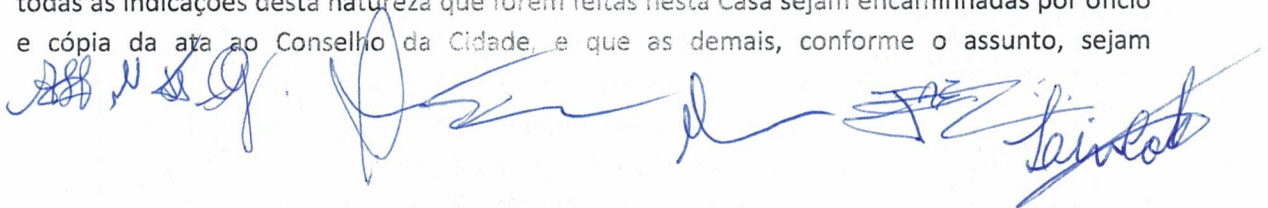 todas as indicações desta natureza que forem feitas nesta Casa sejam encaminhadas por ofício
e cópia da ata ao Conselho da Cidade, e que as demais, conforme o assunto, sejam